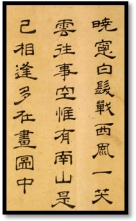 曉窓白髮戰西風一笑
雲往事空惟有南山是
己相逢多在畫圖中